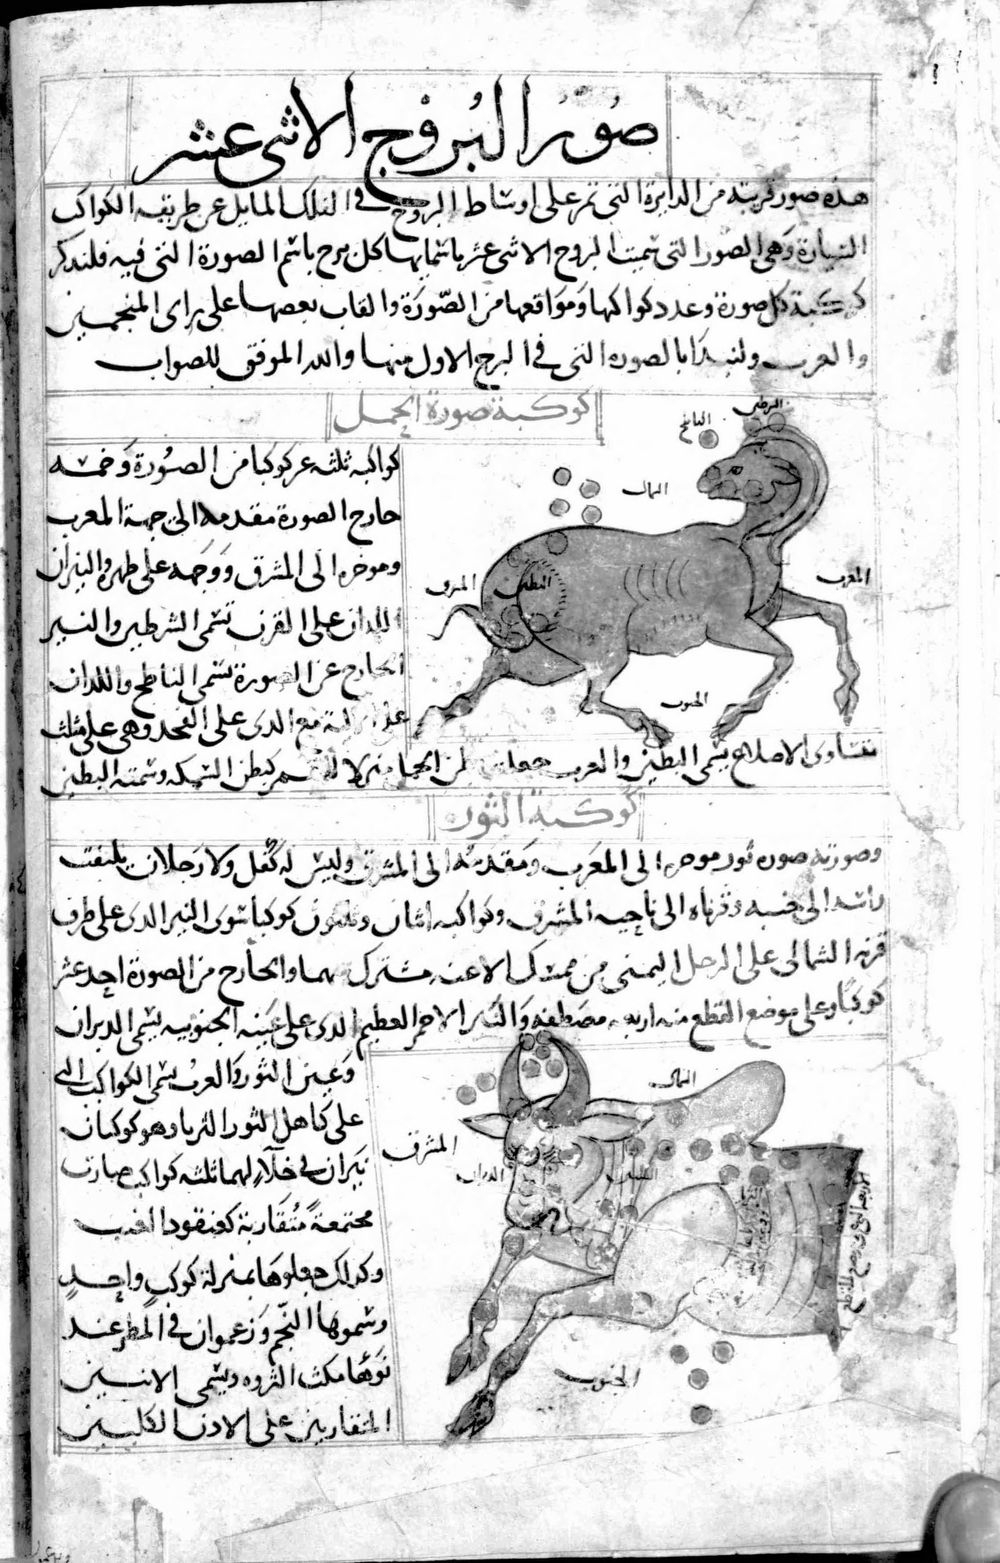 صور البروج الاثنى عشر
هذه صور قريبة من الدايرة التى تمر على اوساط البروج فى الفلك المايل عن طريقة الكواكب
السيارة وهى الصور التى سميت البروج الاثنى عشر باسمايها كل برج باسم الصورة التى فيه فلنذكر
كوكبة كل صورة وعدد كواكبها ومواقعها من الصورة والقاب بعضها على راى المنجمين
والعرب ولنبدا بالصورة التى فى البرج الاول منها والله الموفق للصواب
كوكبة صورة الحمل
الناطح
الشرطين
الشمال
المغرب
المشرق
البطين
الجنوب
كواكبه ثلثة عشر كوكبا من الصورة وخمسة
خارج الصورة مقدمه الى جهة المغرب
وموخره الى المشرق ووجهه على ظهره والنيران
اللذان على القرن تسمى الشرطين والنير
الخارج عن الصورة تسمى الناطح واللذان
على الالية مع الذى على الفخذ وهى على مثلث
متساوى الاضلاع يسمى البطين والعرب جعلت بطن الحمل كبطن السمكة وسمته البطين
كوكبة الثور
وصورته صورة ثور موخره الى المغرب ومقدمه الى المشرق وليس له كفل ولا رجلان يلتفت
راسه الى جنبه وقرناه الى ناحية المشرق وكواكبه اثنان وثلثون كوكبا سوى النير الذى على طرف
قرنه الشمالى على الرجل اليمنى من ممسك الاعنة مشترك بينهما والخارج من الصورة احد عشر
كوكبا وعلى موضع القطع منه اربعة مصطفة والنير الاحمر العظيم الذى على عينه الجنوبية يسمى الدبران
وعين الثور والعرب يسمى الكواكب التى
على كاهل الثور الثريا وهو كوكبان
نيران فى خلالهما ثلثة كواكب صارت
مجتمعة متقاربة كعنقود العنب
وكذلك جعلوها بمنزلة كوكب واحد
وسموها النجم وزعموا ان فى المطر عند
نوئها مكث الثروة ويسمى الاثنين
المتقاربين على الاذن الكلبين
الشمال
المشرق
الدبران
الجنوب